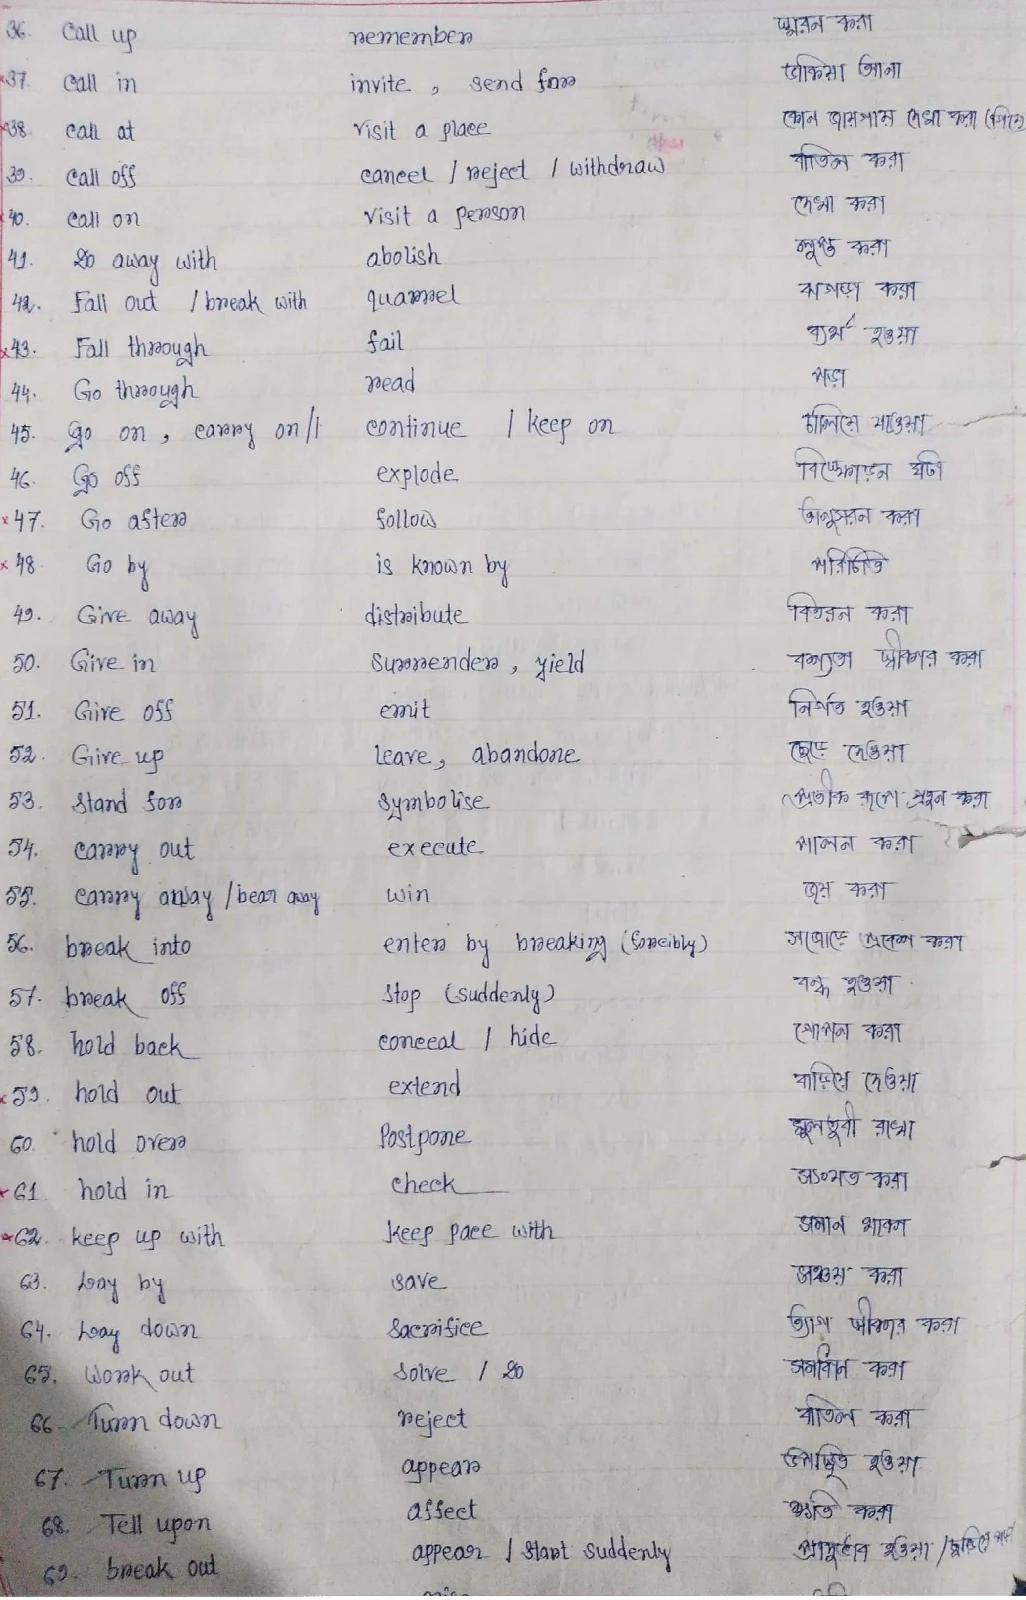 36. Call up remember স্মরন করা
37. Call in invite, send for ডাকিয়া আনা
38. Call at visit a place কোন জায়গায় দেখা করা
39. Call off cancel / reject / withdraw বাতিল করা
40. Call on visit a person দেখা করা
41. Do away with abolish লুপ্ত করা
42. Fall out / break with quarrel ঝগড়া করা
43. Fall through fail ব্যর্থ হওয়া
44. Go through read পড়া
45. Go on, carry on // continue / keep on চালিয়ে যাওয়া
46. Go off explode বিস্ফোড়ন ঘটা
47. Go after follow অনুসরন করা
48. Go by is known by পরিচিতি
49. Give away distribute বিতরন করা
50. Give in surrender, yield বশ্যতা স্বীকার করা
51. Give off emit নির্গত হওয়া
52. Give up leave, abandone ছেড়ে দেওয়া
53. Stand for symbolise প্রতীক রূপে গ্রহন করা
54. carry out execute পালন করা
55. carry away / bear away win জয় করা
56. break into enter by breaking (forcibly) প্রবেশ করা
57. break off stop (suddenly) বন্ধ হওয়া
58. hold back conceal / hide গোপন করা
59. hold out extend বাড়িয়ে দেওয়া
60. hold over Postpone মুলতুবী রাখা
61 hold in check সংযত করা
62. keep up with keep pace with সমান থাকা
63. Lay by save সঞ্চয় করা
64. Lay down sacrifice ত্যাগ স্বীকার করা
65. Work out solve / do সমাধান করা
66 Turn down reject বাতিল করা
67. Turn up appear উপস্থিত হওয়া
68. Tell upon affect ক্ষতি করা
69. break out appear / start suddenly প্রাদুর্ভাব হওয়া /